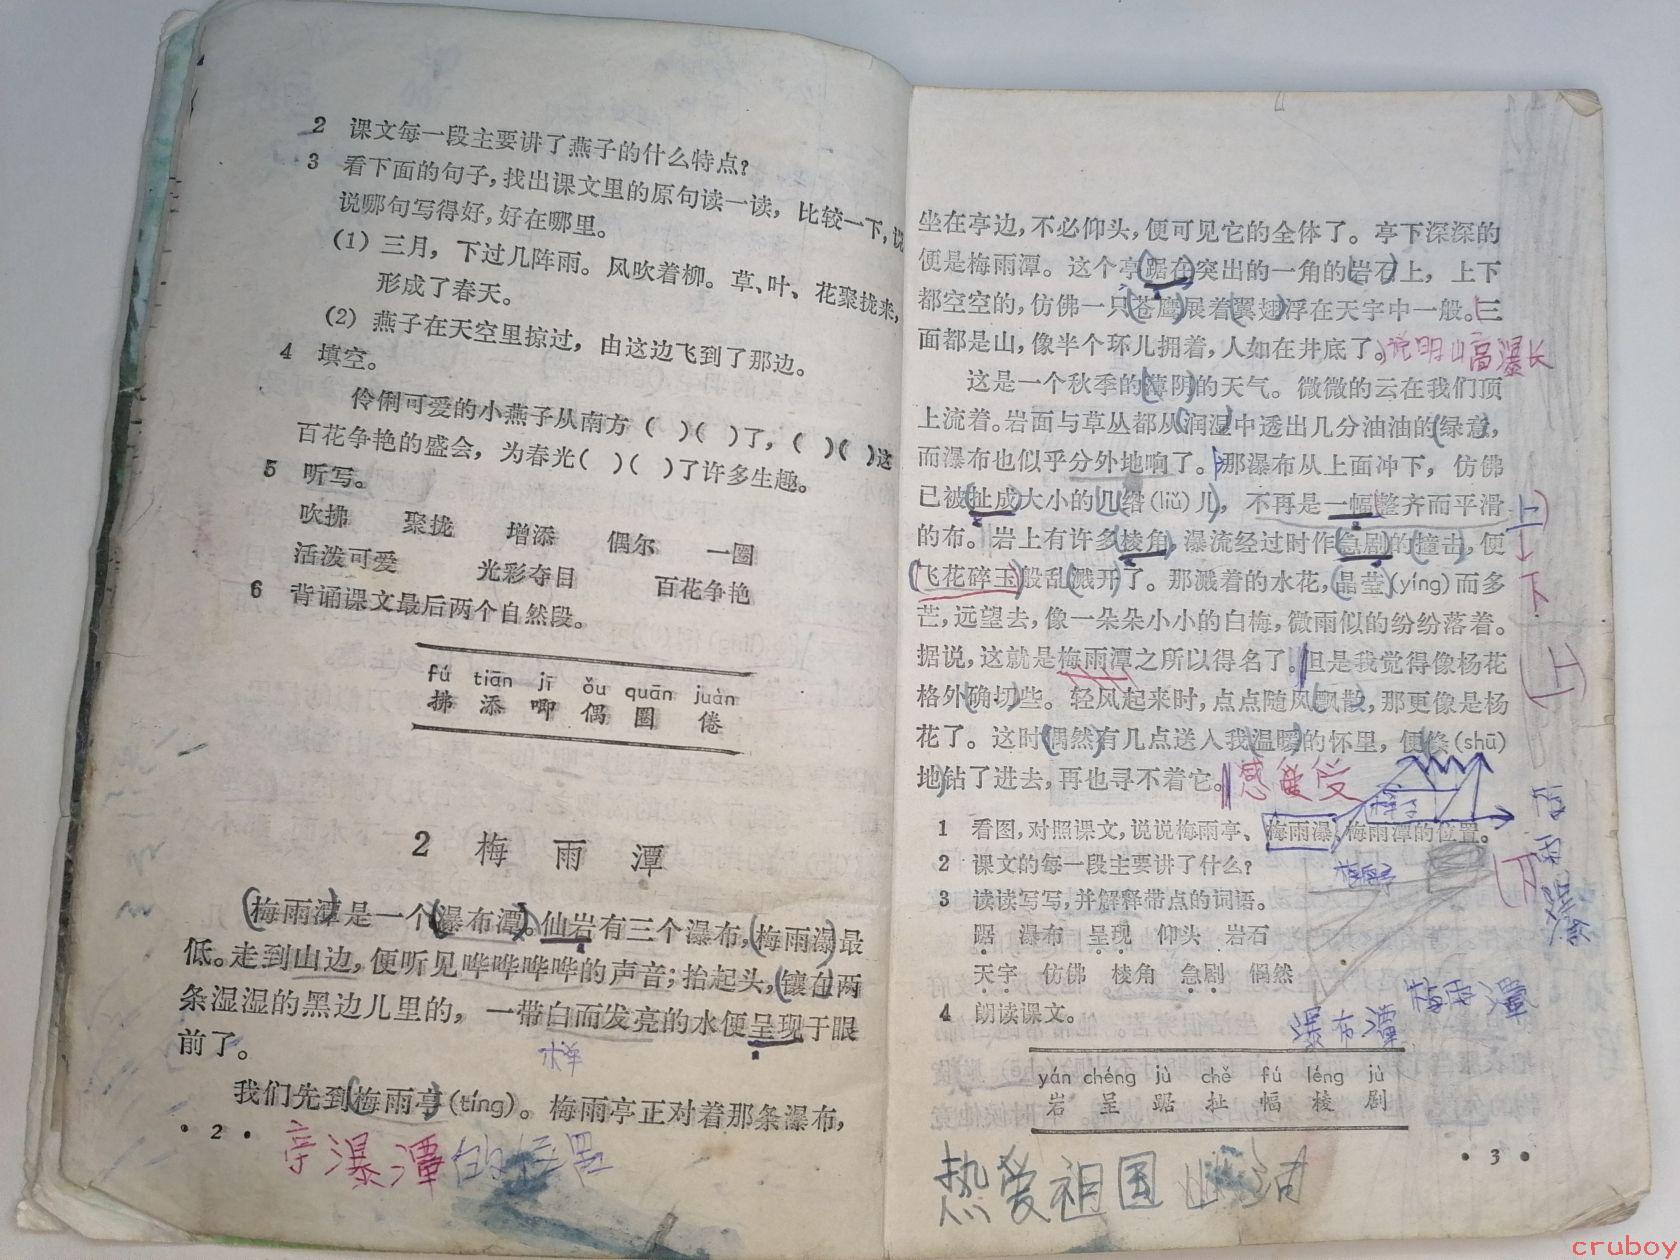 2 课文每一段主要讲了燕子的什么特点?
3 看下面的句子,找出课文里的原句读一读,比较一下,说
说哪句写得好,好在哪里。
(1) 三月,下过几阵雨。风吹着柳。草、叶、花聚拢来,
形成了春天。
(2) 燕子在天空里掠过,由这边飞到了那边。
4 填空。
伶俐可爱的小燕子从南方( )( )了,( )( )这
百花争艳的盛会,为春光( )( )了许多生趣。
5 听写。
吹拂 聚拢 增添 偶尔 一圈
活泼可爱 光彩夺目 百花争艳
6 背诵课文最后两个自然段。
fú tiān jī ǒu quān juàn
拂 添 唧 偶 圈 倦
2 梅雨潭
梅雨潭是一个瀑布潭。仙岩有三个瀑布,梅雨瀑最
低。走到山边,便听见哗哗哗哗的声音;抬起头,镶在两
条湿湿的黑边儿里的,一带白而发亮的水便呈现于眼
前了。
我们先到梅雨亭(tíng)。梅雨亭正对着那条瀑布,
• 2 •
亭瀑潭的位置
坐在亭边,不必仰头,便可见它的全体了。亭下深深的
便是梅雨潭。这个亭踞在突出的一角的岩石上,上下
都空空的,仿佛一只苍鹰展着翼翅浮在天宇中一般。三
面都是山,像半个环儿拥着,人如在井底了。说明山高瀑长
这是一个秋季的薄阴的天气。微微的云在我们顶
上流着。岩面与草丛都从润湿中透出几分油油的绿意,
而瀑布也似乎分外地响了。那瀑布从上面冲下,仿佛
已被扯成大小的几绺(liǔ)儿,不再是一幅整齐而平滑
的布。岩上有许多棱角,瀑流经过时作急剧的撞击,便
飞花碎玉般乱溅开了。那溅着的水花,晶莹(yíng)而多
芒,远望去,像一朵朵小小的白梅,微雨似的纷纷落着。
据说,这就是梅雨潭之所以得名了。但是我觉得像杨花
格外确切些。轻风起来时,点点随风飘散,那更像是杨
花了。这时偶然有几点送入我温暖的怀里,便倏(shū)
地钻了进去,再也寻不着它。感受
上
下
1 看图,对照课文,说说梅雨亭、梅雨瀑、梅雨潭的位置。
2 课文的每一段主要讲了什么?
3 读读写写,并解释带点的词语。
踞 瀑布 呈现 仰头 岩石
天宇 仿佛 棱角 急剧 偶然
4 朗读课文。
瀑布潭 梅雨潭
yán chéng jù chě fú léng jù
岩 呈 踞 扯 幅 棱 剧
• 3 •
热爱祖国山河
cruboy